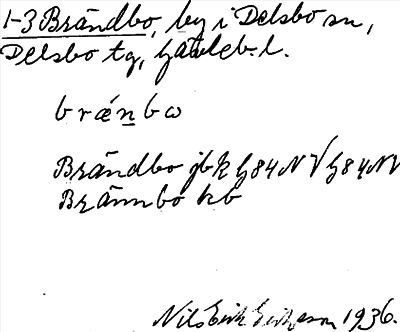 1-3 Brändbo, by i Delsbo sn,
Delsbo tg, Gävleb. l.
brǽnbω
Brändbo jbk G84N V G84NV
Brännbo kb
Nils Erik Eriksson 1936.